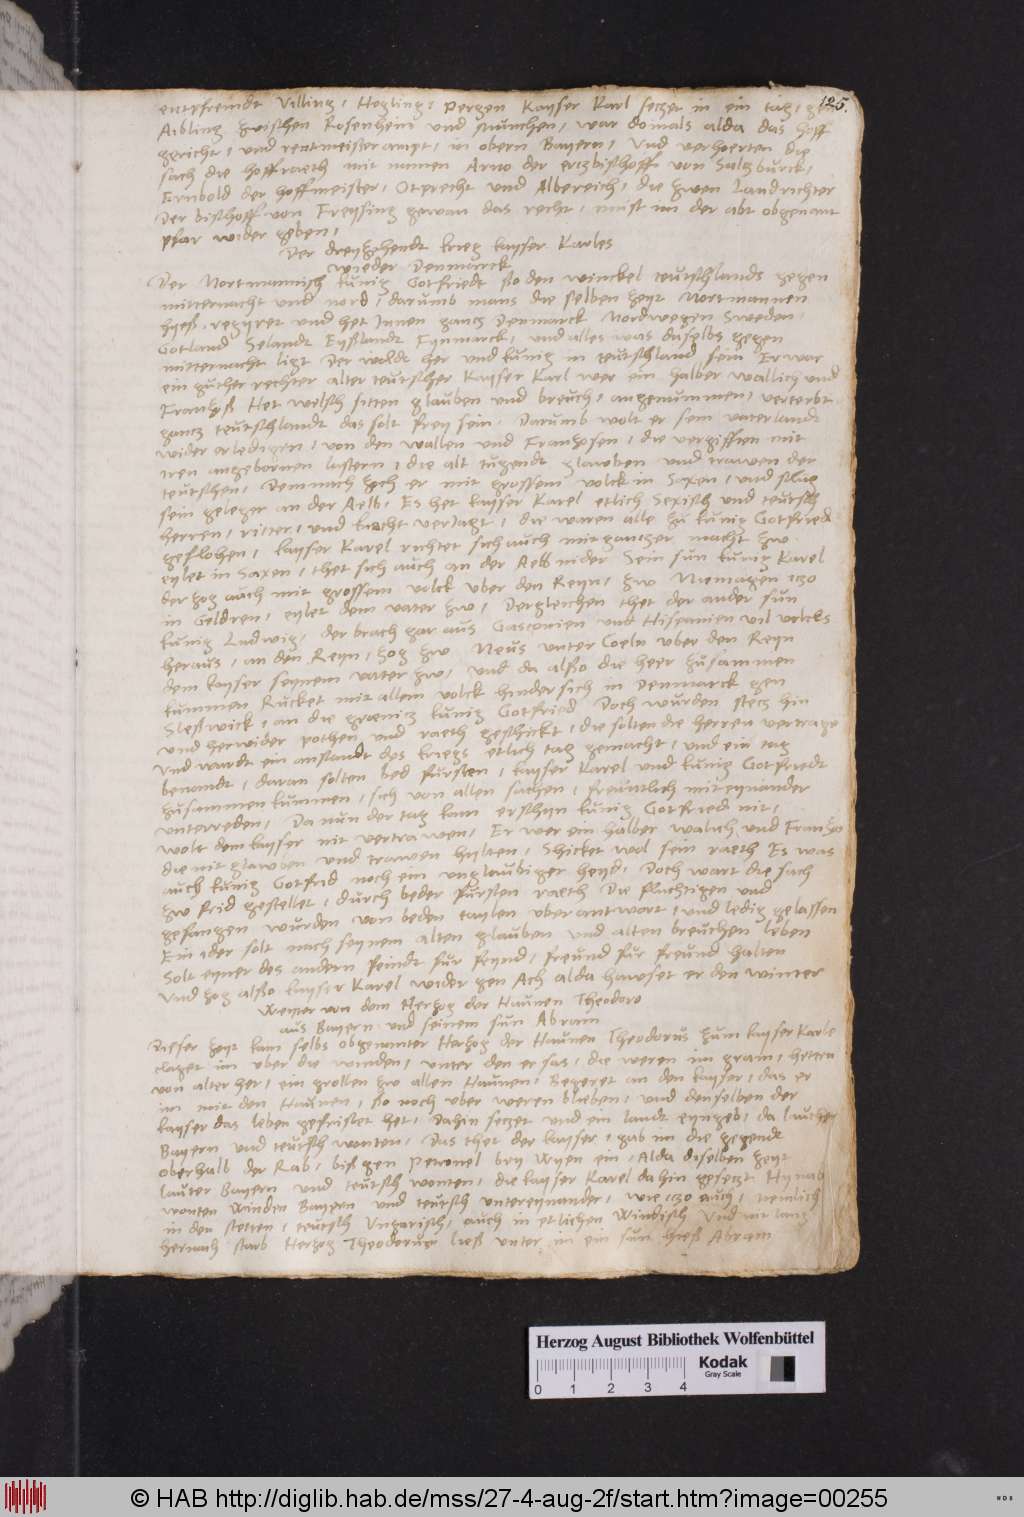 125.
entpfreindt Villing, Hogling, Pergen Kayser Karl seczet in ein tag,
Aibling zwischen Rosenheim und München, war doimals alda das hoff
gericht, und rentmeister ampt, in obern Bayern, Und verhoerten die
sach die hoffraeth mit namen Arno der erczbischoff von Saltzburck,
Ernbold der hoffmeister, Otprecht und Albereich, die zwen Landrichter
Der bischoff von Freysing gewan das recht, must im der abt obgenant
pfar wider geben,
Der dreyzehendt krieg kayser Karles
wieder Denmarck
Der Nortmannisch künig Gotfriedt so den winckel teutschlands gegen
mitternacht und nord, darumb mans die selben heyt Nortmannen
hyess, regyret und het Innen gancz Denmarck Nordwegen Sweden,
Gotland Selandt Eyßlandt Fynmarck, und alles was daselbs gegen
mitternacht ligt Der woldt her und künig in teutschland sein Er war
ein guther rechter alter teutscher Kayser Karl wer ein halber wallich und
Franzoß Het welsch sitten glauben und breuch, angenummen, verterbt
gancz teutschlandt das solt frey sein, Darumb wolt er sein vaterlandt
wider erledigen, von den wallen und Franzosen, die vergifften mit
iren angebornen lastern, die alt tugendt glawben und trawen der
teutschen, Demnach zoch er mit grossem volck in Saxen, und slug
sein geleger an der Aelb, Es het kayser Karel etlich Sexisch und teutsch
herren, ritter, und knecht verjagt, die waren alle zu künig Gotfried
geflohen, kayser Karel richtet sich auch mit ganczer macht zw
eylet in Saxen, thet sich auch an der Aelb nider Sein sun kunig Karel
der zog auch mit grossem volck uber den Reyn, zw Niemagen iczo
in Geldren, eylet dem vater zw, Dergleichen thet der ander sun
künig Ludwig, der brach gar aus Gasconien und Hispanien vil volcks
heraus, an den Reyn, zog zw Neus unter Coeln uber den Reyn
dem kayser seynem vatter zw, und da alßo die heer zusammen
kummen Rucket mit allem volck hindersich in Denmarck gen
Sleßwick, an die graenicz künig Gotfried Doch wurden stecz hin
und herwider pothen und raeth geschickt, die solten die herren vertrage
Und wardt ein anstandt des kriegs etlich tag gemacht, und ein tag
benandt, daran solten bed fursten, kayser Karel und künig Gotfriedt
zusammen kummen, sich von allen sachen, freuntlich miteynander
unterreden, Da nun der tag kam erschyn künig Gotfried nit,
wolt dem kayser nit vertrawen, Er wer ein halber walich und Franzos
die nit glawben und trawen hylten, Shicket wol sein raeth Es was
auch künig Gotfrid noch ein unglaubiger heyd, Doch wart die sach
zw frid gestellet, durch beder fursten raeth Die fluchtigen und
gefangen wurden von beden taylen uberantwort, und ledig gelassen
Ein ider solt nach seynem alten glauben und alten breuchen leben
Solt eyner des andern feindt fur feynd, freund fur freund halten
Und zog alßo kayser Karel wider gen Ach alda hawset er den winter
Weyter von dem Herzog der Haunen Theodoro
aus Bayern und seinem sun Abram
Dieser heyt kam selbs obgenanter Herzog der Haunen Theodorus zum kayser Karle
claget im uber die winden, unter den er sas, die weren im gram, heten
von alter her, ein grollen zw allen Haunen, Begeret an den kayser, das er
im mit den Haunen, so noch uber weren blieben, und denselben der
kayser das leben gefristet het, Dahin seczet und ein landt eyngeb, da lauther
Bayern und teutsch wonten, Das thet der kayser, gab im die gegendt
oberhalb der Rab, bis gen Petronel bey Wyen ein, Alda daselben heyt
lauter Bayern und teutsch wonten, die kayser Karel dahin gesetzt
wonten Winden Bayern und teutsch untereynander, wie iczo auch, nemlich
in den stetten, teutsch Ungarisch, auch in etlichen Windisch Und nit lang
hernach starb Herzog Theodorus ließ unter im ein sun hieß Abram
Herzog August Bibliothek Wolfenbüttel
Kodak
Gray Scale
0 1 2 3 4
© HAB http://diglib.hab.de/mss/27-4-aug-2f/start.htm?image=00255